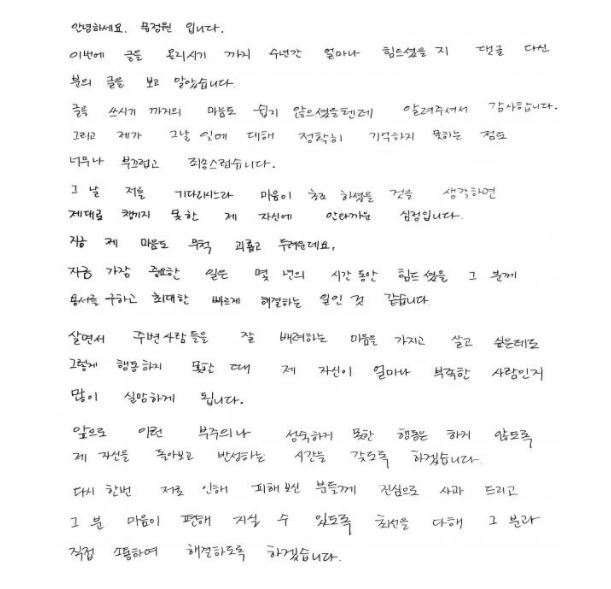 안녕하세요. 풍정원 입니다.
이번에 글을 올리시기 까지 수년간 얼마나 힘드셨을지 댓글 다신
분의 글을 보고 알았습니다
글을 쓰시기 까지의 마음도 쉽지 않으셨을텐데 알려주셔서 감사합니다.
그리고 제가 그날 일에 대해 정확히 기억하지 못하는 점도
너무나 부끄럽고 죄송스럽습니다.
그 날 저를 기다리시느라 마음이 초조 하셨을 것을 생각하면
제대로 챙기지 못한 제 자신에 안타까운 심정입니다.
지금 제 마음도 무척 괴롭고 두려운데요,
지금 가장 중요한 일은 몇 년의 시간 동안 힘드셨을 그 분께
용서를 구하고 최대한 빠르게 해결하는 일인 것 같습니다
살면서 주변사람들을 잘 배려하는 마음을 가지고 살고 싶은데도
그렇게 행동하지 못한 때 제 자신이 얼마나 부족한 사람인지
많이 실망하게 됩니다.
앞으로 이런 부주의나 성숙하지 못한 행동은 하게 않도록
제 자신을 돌아보고 반성하는 시간을 갖도록 하겠습니다.
다시 한번 저로 인해 피해 보신 분들께 진심으로 사과 드리고
그 분 마음이 편해 지실 수 있도록 최선을 다해 그 분과
직접 소통하여 해결하도록 하겠습니다.